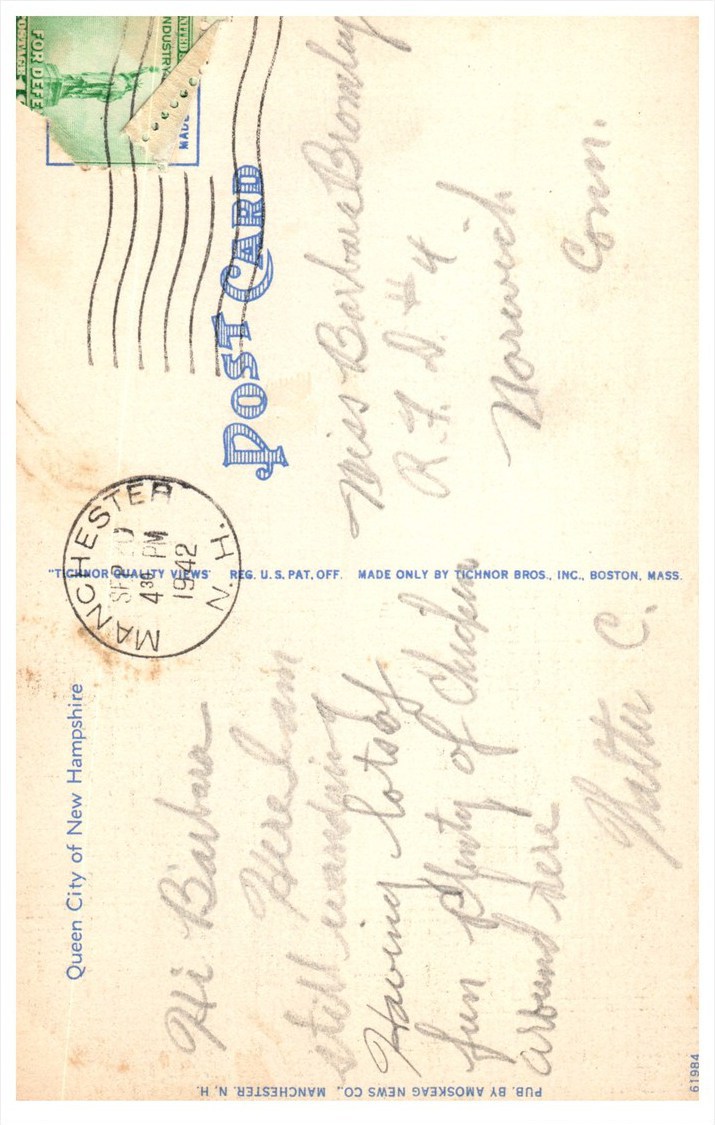 Queen City of New Hampshire
Hi Barbara
Here I am
still wandring
Having lots of
fun plenty of Chicken
around here
Walter C.
PUB. BY AMOSKEAG NEWS CO., MANCHESTER, N. H.
"TICHNOR QUALITY VIEWS" REG. U. S. PAT. OFF. MADE ONLY BY TICHNOR BROS., INC., BOSTON, MASS.
MANCHESTER
SEP
4 30 PM
1942
N. H.
POST CARD
INDUSTRY
FOR DEFE
POSTAGE
MADE
Miss Barbara Bromley
R. F. D. # 4
Norwich
Conn.
61984